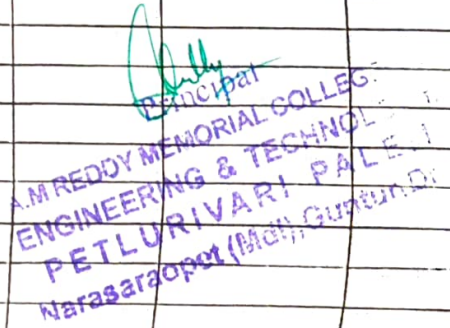 Principal
A.M REDDY MEMORIAL COLLEGE
ENGINEERING & TECHNOL
PETLURIVARI PALE
Narasaraopet (Mdl), Guntur.D